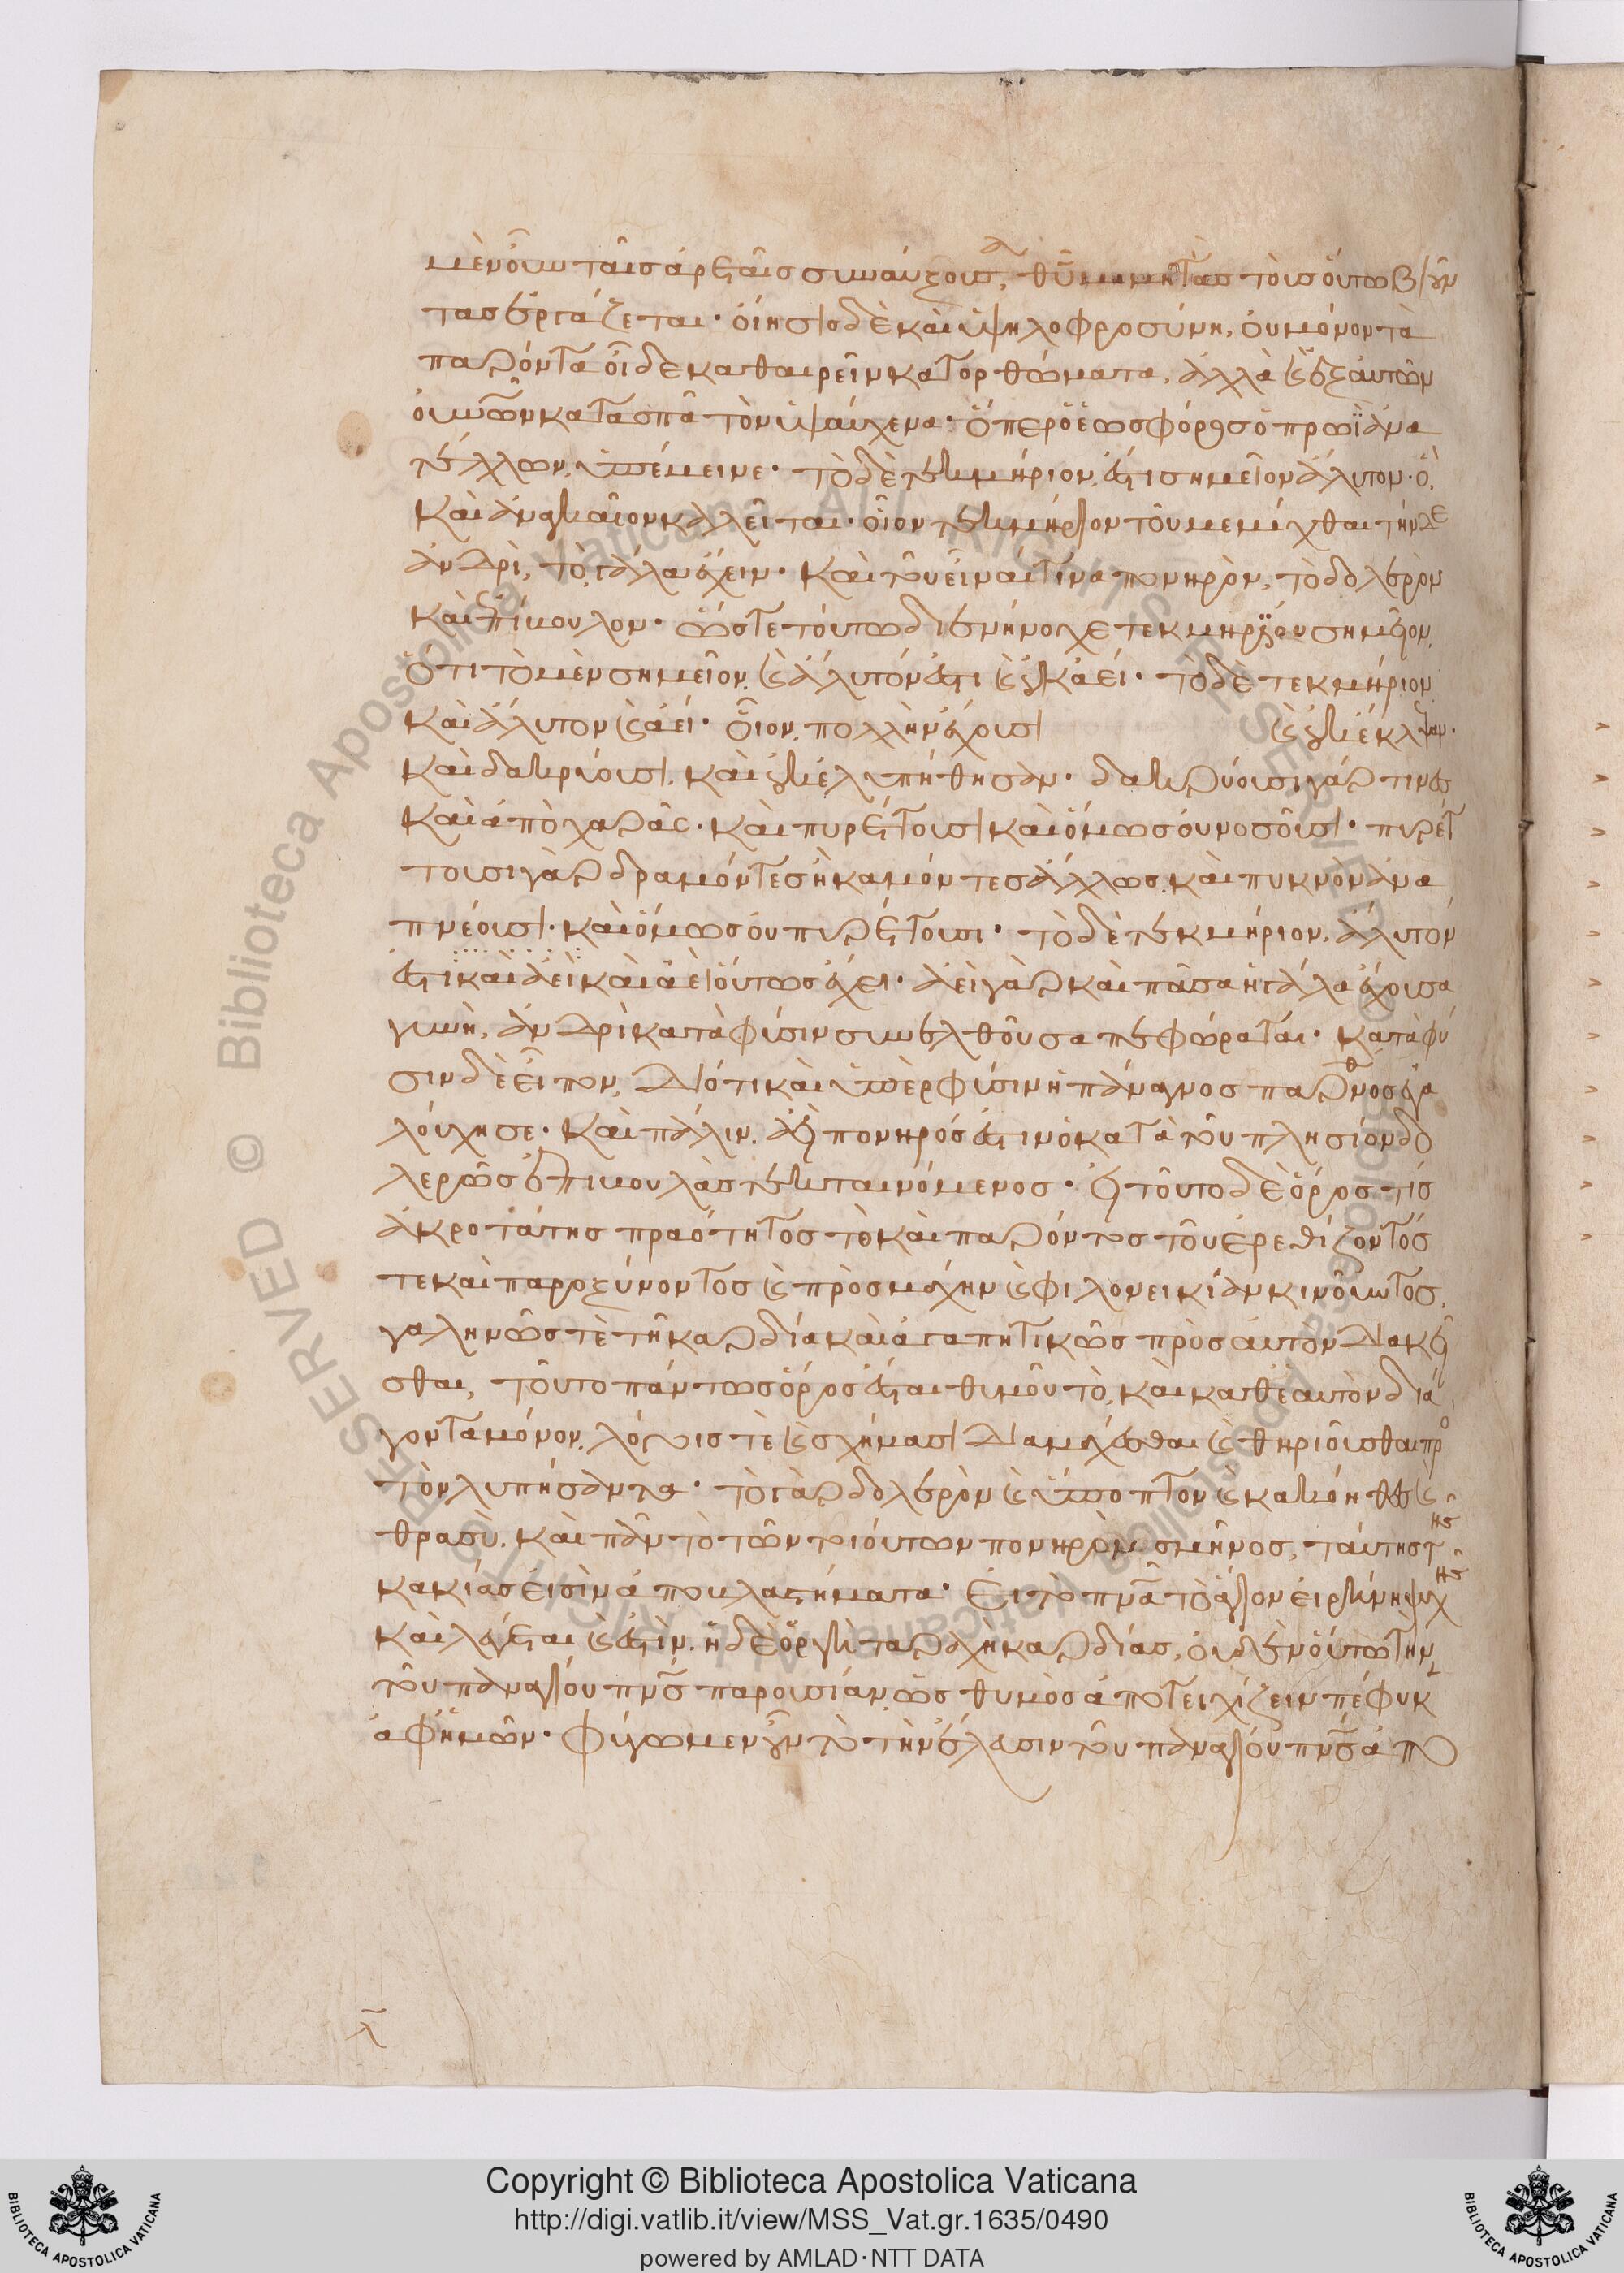 μὲν οὖν ταῖς ἀρεταῖς συναύξουσα, θῦ μιμητὰς τοὺς οὕτω βιοῦν
τας ἐργάζεται· οἴησις δὲ καὶ ὑψηλοφροσύνη, οὐ μόνον τὰ
παρόντα οἶδε καθαιρεῖν κατορθώματα, ἀλλὰ καὶ ἐξ αὐτῶν
οὐνῶν κατασπᾶ τὸν ὑψαύχενα· ὅπερ ὁ ἑωσφόρος ὁ πρωῒ ἀνα
τέλλων, ὑπέμεινε· τὸ δὲ τεκμήριον, ἐστὶ σημεῖον ἄλυτον· ὃ
καὶ ἀναγκαῖον καλεῖται· οἷον τεκμήριον τοῦ μεμίχθαι τήνδε
ἀνδρὶ, τὸ γάλα ἔχειν· καὶ τοῦ εἶναί τινα πονηρὸν, τὸ δολερὸν
καὶ ἐπίβουλον· ὥστε τούτω διενήνοχε τεκμήριον σημείου,
ὅτι τὸ μὲν σημεῖον, καὶ ἄλυτόν ἐστι καὶ οὐκ ἀεί· τὸ δὲ τεκμήριον
καὶ ἄλυτον καὶ ἀεί· οἷον, πολλὴν ἔχουσι καὶ οὐκ ἔκλεψαν·
καὶ δακρύουσι, καὶ οὐκ ἐλυπήθησαν· δακρύουσι γάρ τινες
καὶ ἀπὸ χαρᾶς· καὶ πυρέττουσι καὶ ὅμως οὐ νοσοῦσι· πυρέτ
τουσι γὰρ δραμόντες ἢ καμόντες ἄλλως, καὶ πυκνὸν ἀνα
πνέουσι· καὶ ὅμως οὐ πυρέττουσι· τὸ δὲ τεκμήριον, ἄλυτόν
ἐστι καὶ ἀεὶ καὶ ἀεὶ οὕτως ἔχει· ἀεὶ γὰρ καὶ πᾶσα ἡ γάλα ἔχουσα
γυνὴ, ἀνδρὶ κατὰ φύσιν συνελθοῦσα πεφώραται· κατὰ φύ
σιν δὲ εἶπον, διότι καὶ ὑπὲρ φύσιν ἡ πάναγνος παρθένος ἐγα
λούχησε· καὶ πάλιν, ἀεὶ πονηρός ἐστιν ὁ κατὰ τοῦ πλησίον δο
λερῶς ἐπιβουλὰς τεκταινόμενος· εἰ τοῦτο δὲ ὅρος τῆς
ἀκροτάτης πραότητος τὸ καὶ παρόντος τοῦ ἐρεθίζοντός
τε καὶ παροξύνοντος καὶ πρὸς μάχην καὶ φιλονεικίαν κινοῦντος,
γαληνῶς τὲ τῆ καρδία καὶ ἀγαπητικῶς πρὸς αὐτὸν διακεῖ
σθαι, τοῦτο πάντως ὅρος ἔσται θυμοῦ τὸ, καὶ καθ' ἑαυτὸν διά
γοντα μόνον, λόγοις τὲ καὶ σχήμασι διαμάχεσθαι καὶ θηριοῦσθαι πρὸ
τὸν λυπήσαντα· τὸ γὰρ δολερὸν καὶ ὕποπτον καὶ κακόηθες καὶ
θρασὺ, καὶ πᾶν τὸ τῶν τοιούτων πονηρὸν σμῆνος, ταύτης τῆς
κακίας εἰσὶν ἀποκλαστήματα· εἰ τὸ πνα τὸ ἅγιον εἰρήνη ψυχῆς
καὶ λέγεται καὶ ἐστὶν, ἡ δὲ ὀργὴ ταραχὴ καρδίας, οὐδὲν οὕτω τὴν
τοῦ παναγίου πνς παρουσίαν, ὡς θυμὸς ἀποτειχίζειν πέφυκ
ἀφ' ἡμῶν· φύγωμεν οὖν τὸ τὴν ἔλευσιν τοῦ παναγίου πνς ἀπο
Copyright © Biblioteca Apostolica Vaticana
http://digi.vatlib.it/view/MSS_Vat.gr.1635/0490
powered by AMLAD·NTT DATA
BIBLIOTECA APOSTOLICA VATICANA
BIBLIOTECA APOSTOLICA VATICANA